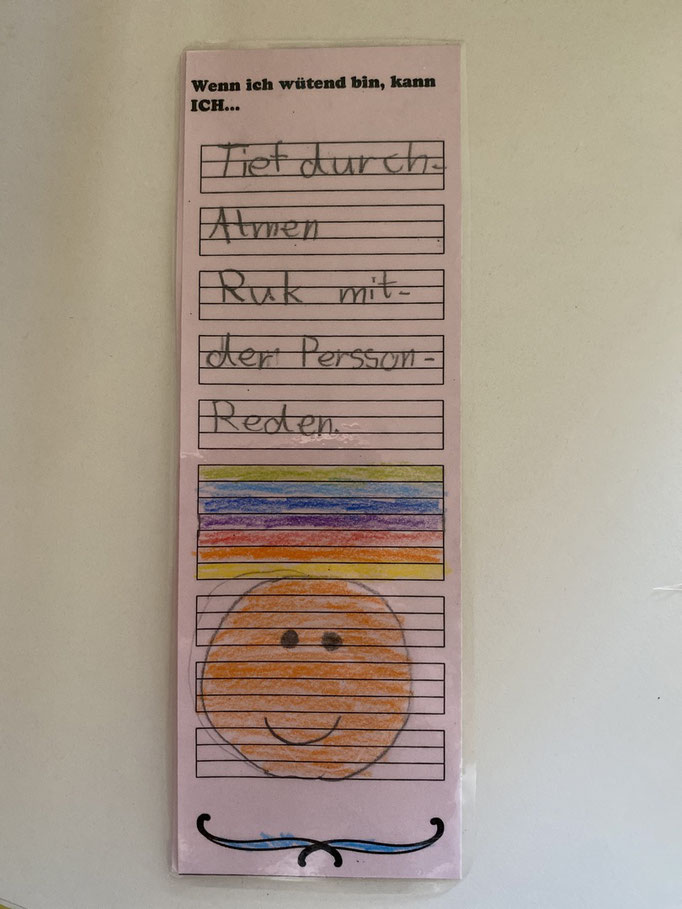 Wenn ich wütend bin, kann
ICH...
Tief durch-
Atmen
Ruk mit-
der Persson-
Reden.